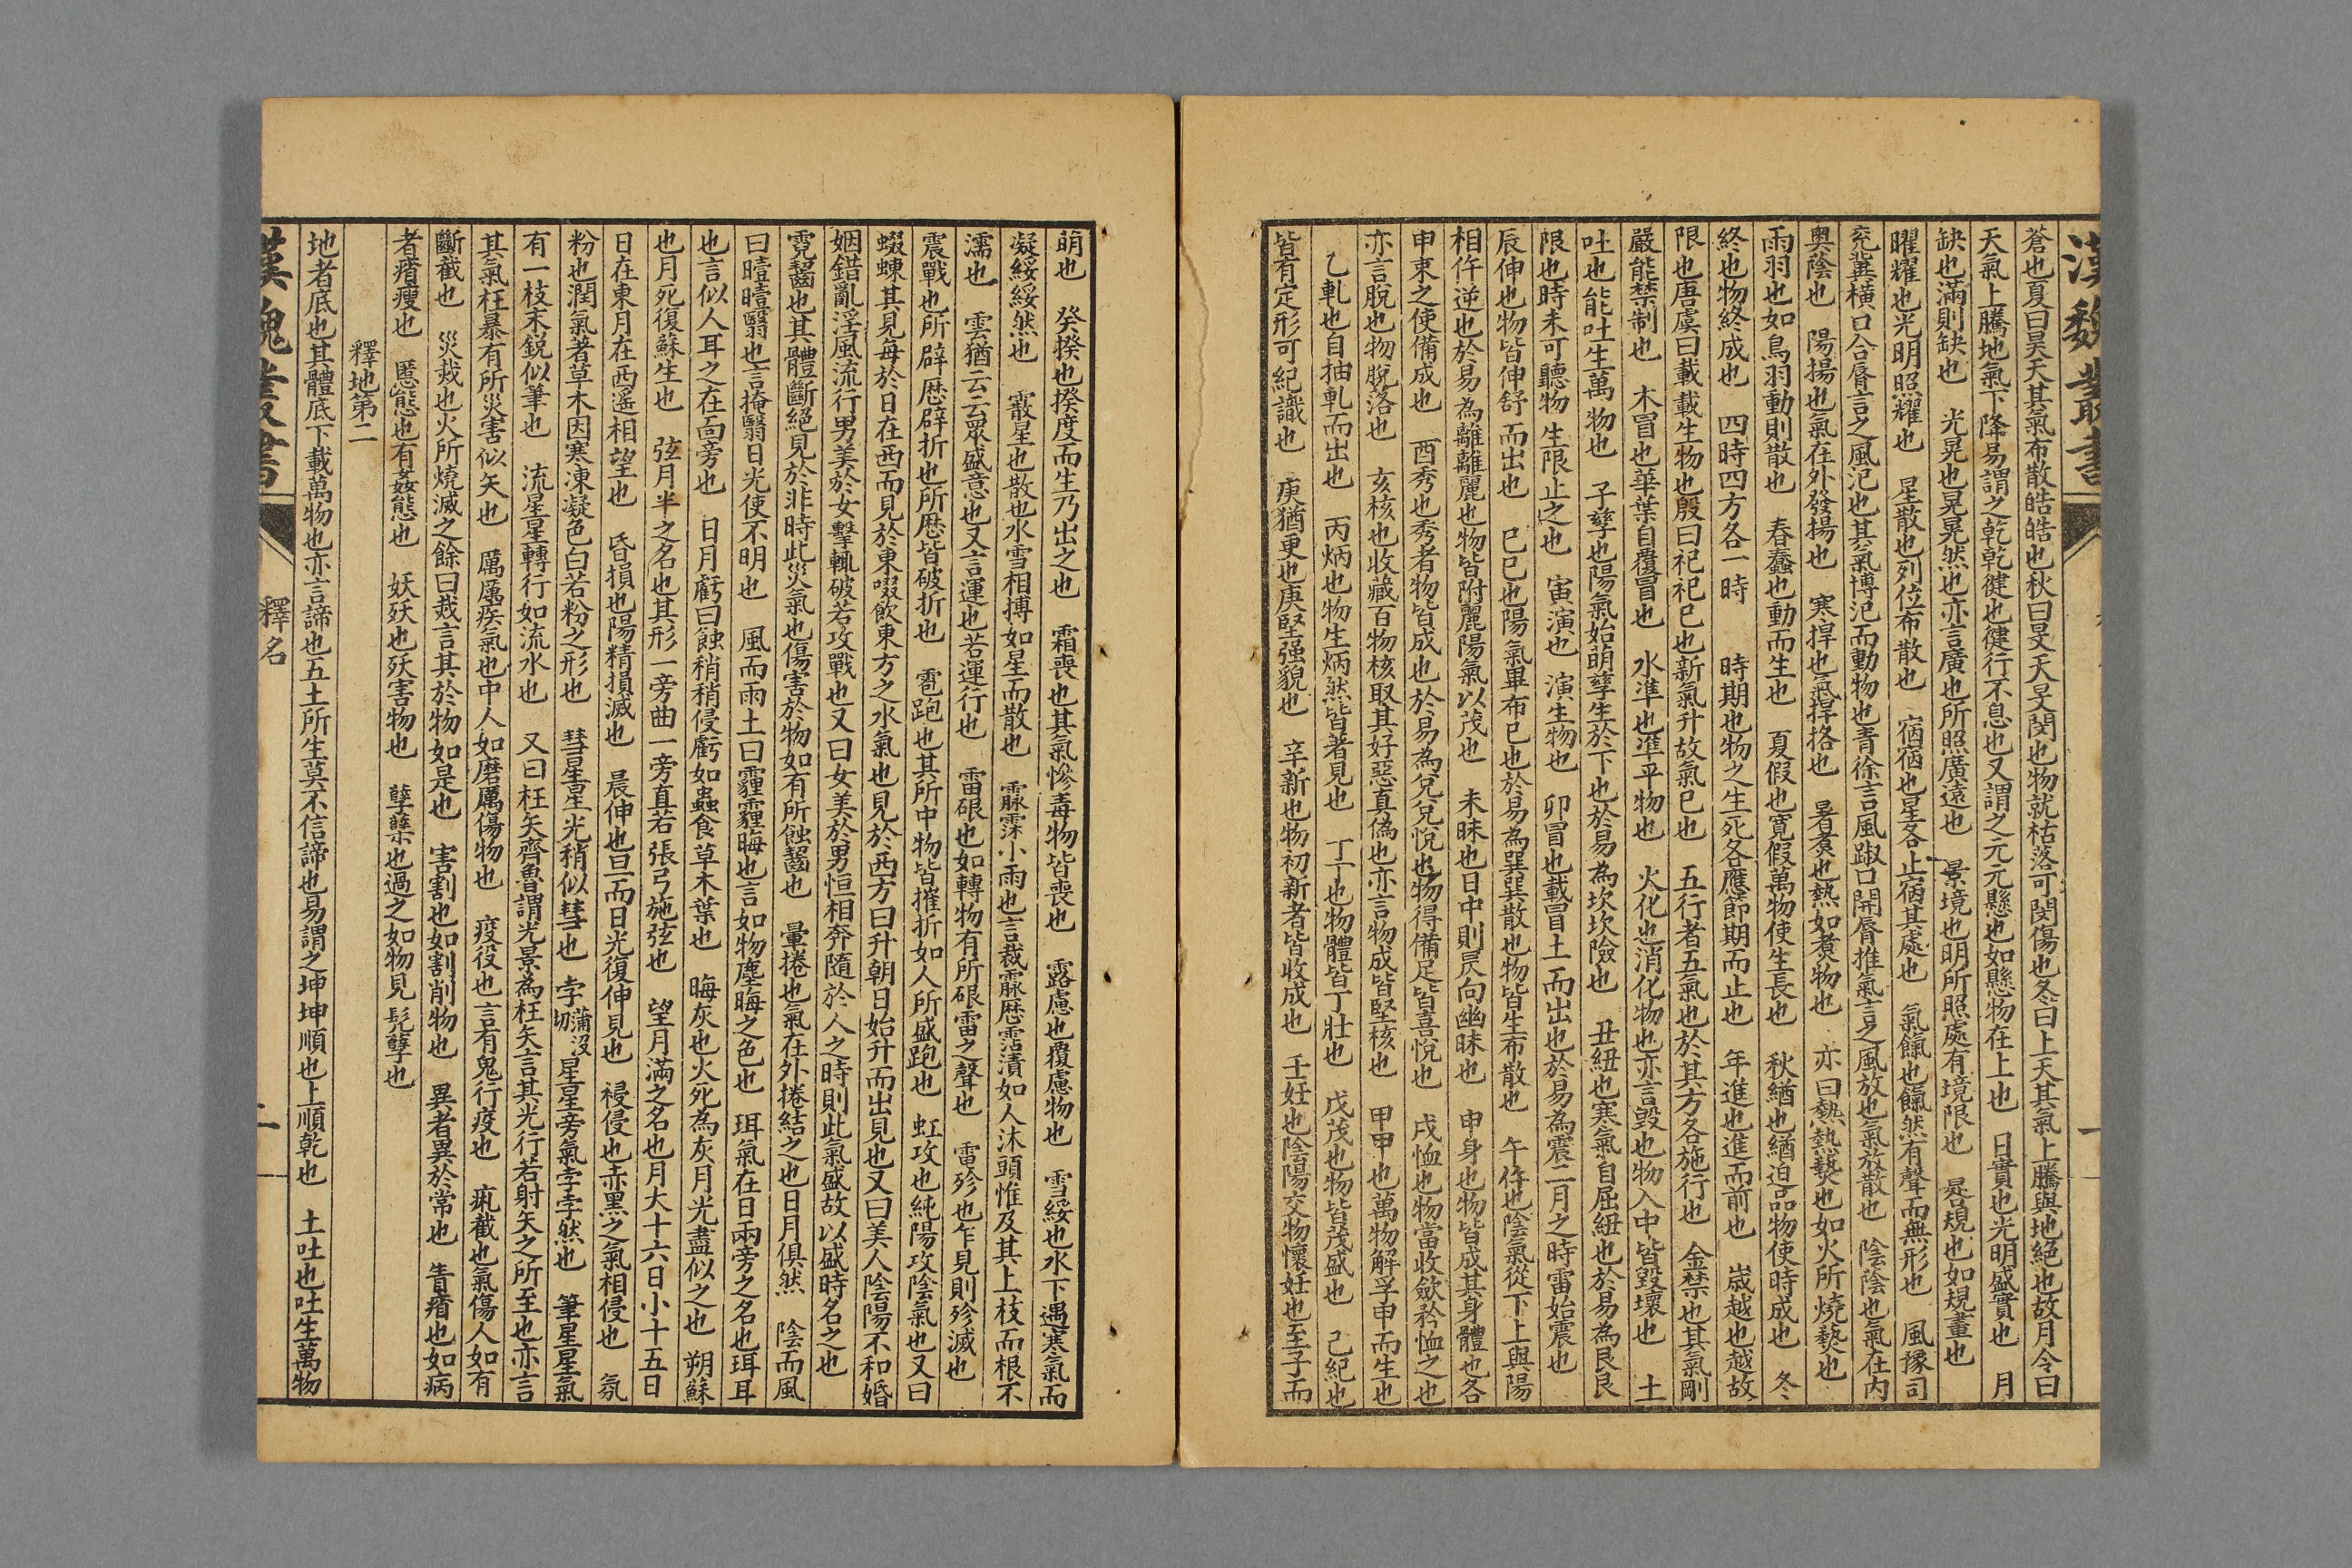 漢魏叢書
蒼也夏曰昊天其氣布散皓皓也秋曰旻天旻閔也物就枯落可閔傷也冬曰上天其氣上騰與地絕也故月令曰
天氣上騰地氣下降易謂之乾乾健也健行不息也又謂之元元懸也如懸物在上也　日實也光明盛實也　月
缺也滿則缺也　光晃也晃晃然也亦言廣也所照廣遠也　景境也明所照處有境限也　晷規也如規畫也
曜耀也光明照耀也　星散也列位布散也　宿宿也星各止宿其處也　氣餼也餼然有聲而無形也　風豫司
兗冀橫口合脣言之風氾也其氣博氾而動物也青徐言風踧口開脣推氣言之風放也氣放散也　陰蔭也氣在內
奧蔭也　陽揚也氣在外發揚也　寒捍也氣捍格也　暑煑也熱如煑物也　亦曰熱熱爇也如火所燒爇也
雨羽也如鳥羽動則散也　春蠢也動而生也　夏假也寛假萬物使生長也　秋緧也緧迫品物使時成也　冬
終也物終成也　四時四方各一時　時期也物之生死各應節期而止也　年進也進而前也　歲越也越故
限也唐虞曰載載生物也殷曰祀祀巳也新氣升故氣巳也　五行者五氣也於其方各施行也　金禁也其氣剛
嚴能禁制也　木冒也華葉自覆冒也　水準也準平物也　火化也消化物也亦言毀也物入中皆毀壞也　土
吐也能吐生萬物也　子孳也陽氣始萌孳生於下也於易為坎坎險也　丑紐也寒氣自屈紐也於易為艮艮
限也時未可聽物生限止之也　寅演也　演生物也　卯冒也載冒土而出也於易為震二月之時雷始震也
辰伸也物皆伸舒而出也　巳巳也陽氣畢布巳也於易為巽巽散也物皆生布散也　午仵也陰氣從下上與陽
相仵逆也於易為離離麗也物皆附麗陽氣以茂也　未昧也日中則昃向幽昧也　申身也物皆成其身體也各
申束之使備成也　酉秀也秀者物皆成也於易為兌兌悅也物得備足皆喜悅也　戌恤也物當收斂矜恤之也
亦言脫也物脫落也　亥核也收藏百物核取其好惡真偽也亦言物成皆堅核也　甲甲也萬物解孚甲而生也
乙軋也自抽軋而出也　丙炳也物生炳然皆著見也　丁丁也物體皆丁壯也　戊茂也物皆茂盛也　己紀也
皆有定形可紀識也　庚猶更也庚堅强貌也　辛新也物初新者皆收成也　壬妊也陰陽交物懷妊也至子而
萌也　癸揆也揆度而生乃出之也　霜喪也其氣慘毒物皆喪也　露慮也覆慮物也　雪綏也水下遇寒氣而
凝綏綏然也　霰星也散也水雪相搏如星而散也　霢霂小雨也言裁霢歷霑漬如人沐頭惟及其上枝而根不
濡也　雲猶云云眾盛意也又言運也若運行也　雷硍也如轉物有所硍雷之聲也　雷殄也乍見則殄滅也
震戰也所辟歷辟折也所歷皆破折也　雹跑也其所中物皆摧折如人所盛跑也　虹攻也純陽攻陰氣也又曰
蝃蝀其見每於日在西而見於東啜飲東方之水氣也見於西方曰升朝日始升而出見也又曰美人陰陽不和婚
姻錯亂淫風流行男美於女擊輒破若攻戰也又曰女美於男恒相奔隨於人之時則此氣盛故以盛時名之也
霓齧也其體斷絕見於非時此災氣也傷害於物如有所蝕齧也　暈捲也氣在外捲結之也日月俱然　陰而風
曰曀曀翳也言掩翳日光使不明也　風而雨土曰霾霾晦也言如物塵晦之色也　珥氣在日兩旁之名也珥耳
也言似人耳之在面旁也　日月虧曰蝕稍稍侵虧如蟲食草木葉也　晦灰也火死為灰月光盡似之也　朔蘇
也月死復蘇生也　弦月半之名也其形一旁曲一旁直若張弓施弦也　望月滿之名也月大十六日小十五日
日在東月在西遥相望也　昏損也陽精損滅也　晨伸也旦而日光復伸見也　祲侵也赤黑之氣相侵也　氛
粉也潤氣著草木因寒凍凝色白若粉之形也　彗星星光稍似彗也　孛蒲沒切星星旁氣孛孛然也　筆星星氣
有一枝末銳似筆也　流星星轉行如流水也　又曰枉矢齊魯謂光景為枉矢言其光行若射矢之所至也亦言
其氣枉暴有所災害似矢也　厲厲疾氣也中人如磨厲傷物也　疫役也言有鬼行疫也　㾐截也氣傷人如有
斷截也　災烖也火所燒滅之餘曰烖言其於物如是也　害割也如割削物也　異者異於常也　眚瘠也如病
者瘠瘦也　慝態也有姦態也　妖殀也殀害物也　孽櫱也過之如物見髡孽也
釋地第二
地者底也其體底下載萬物也亦言諦也五土所生莫不信諦也易謂之坤坤順也上順乾也　土吐也吐生萬物
漢魏叢書　釋名　二